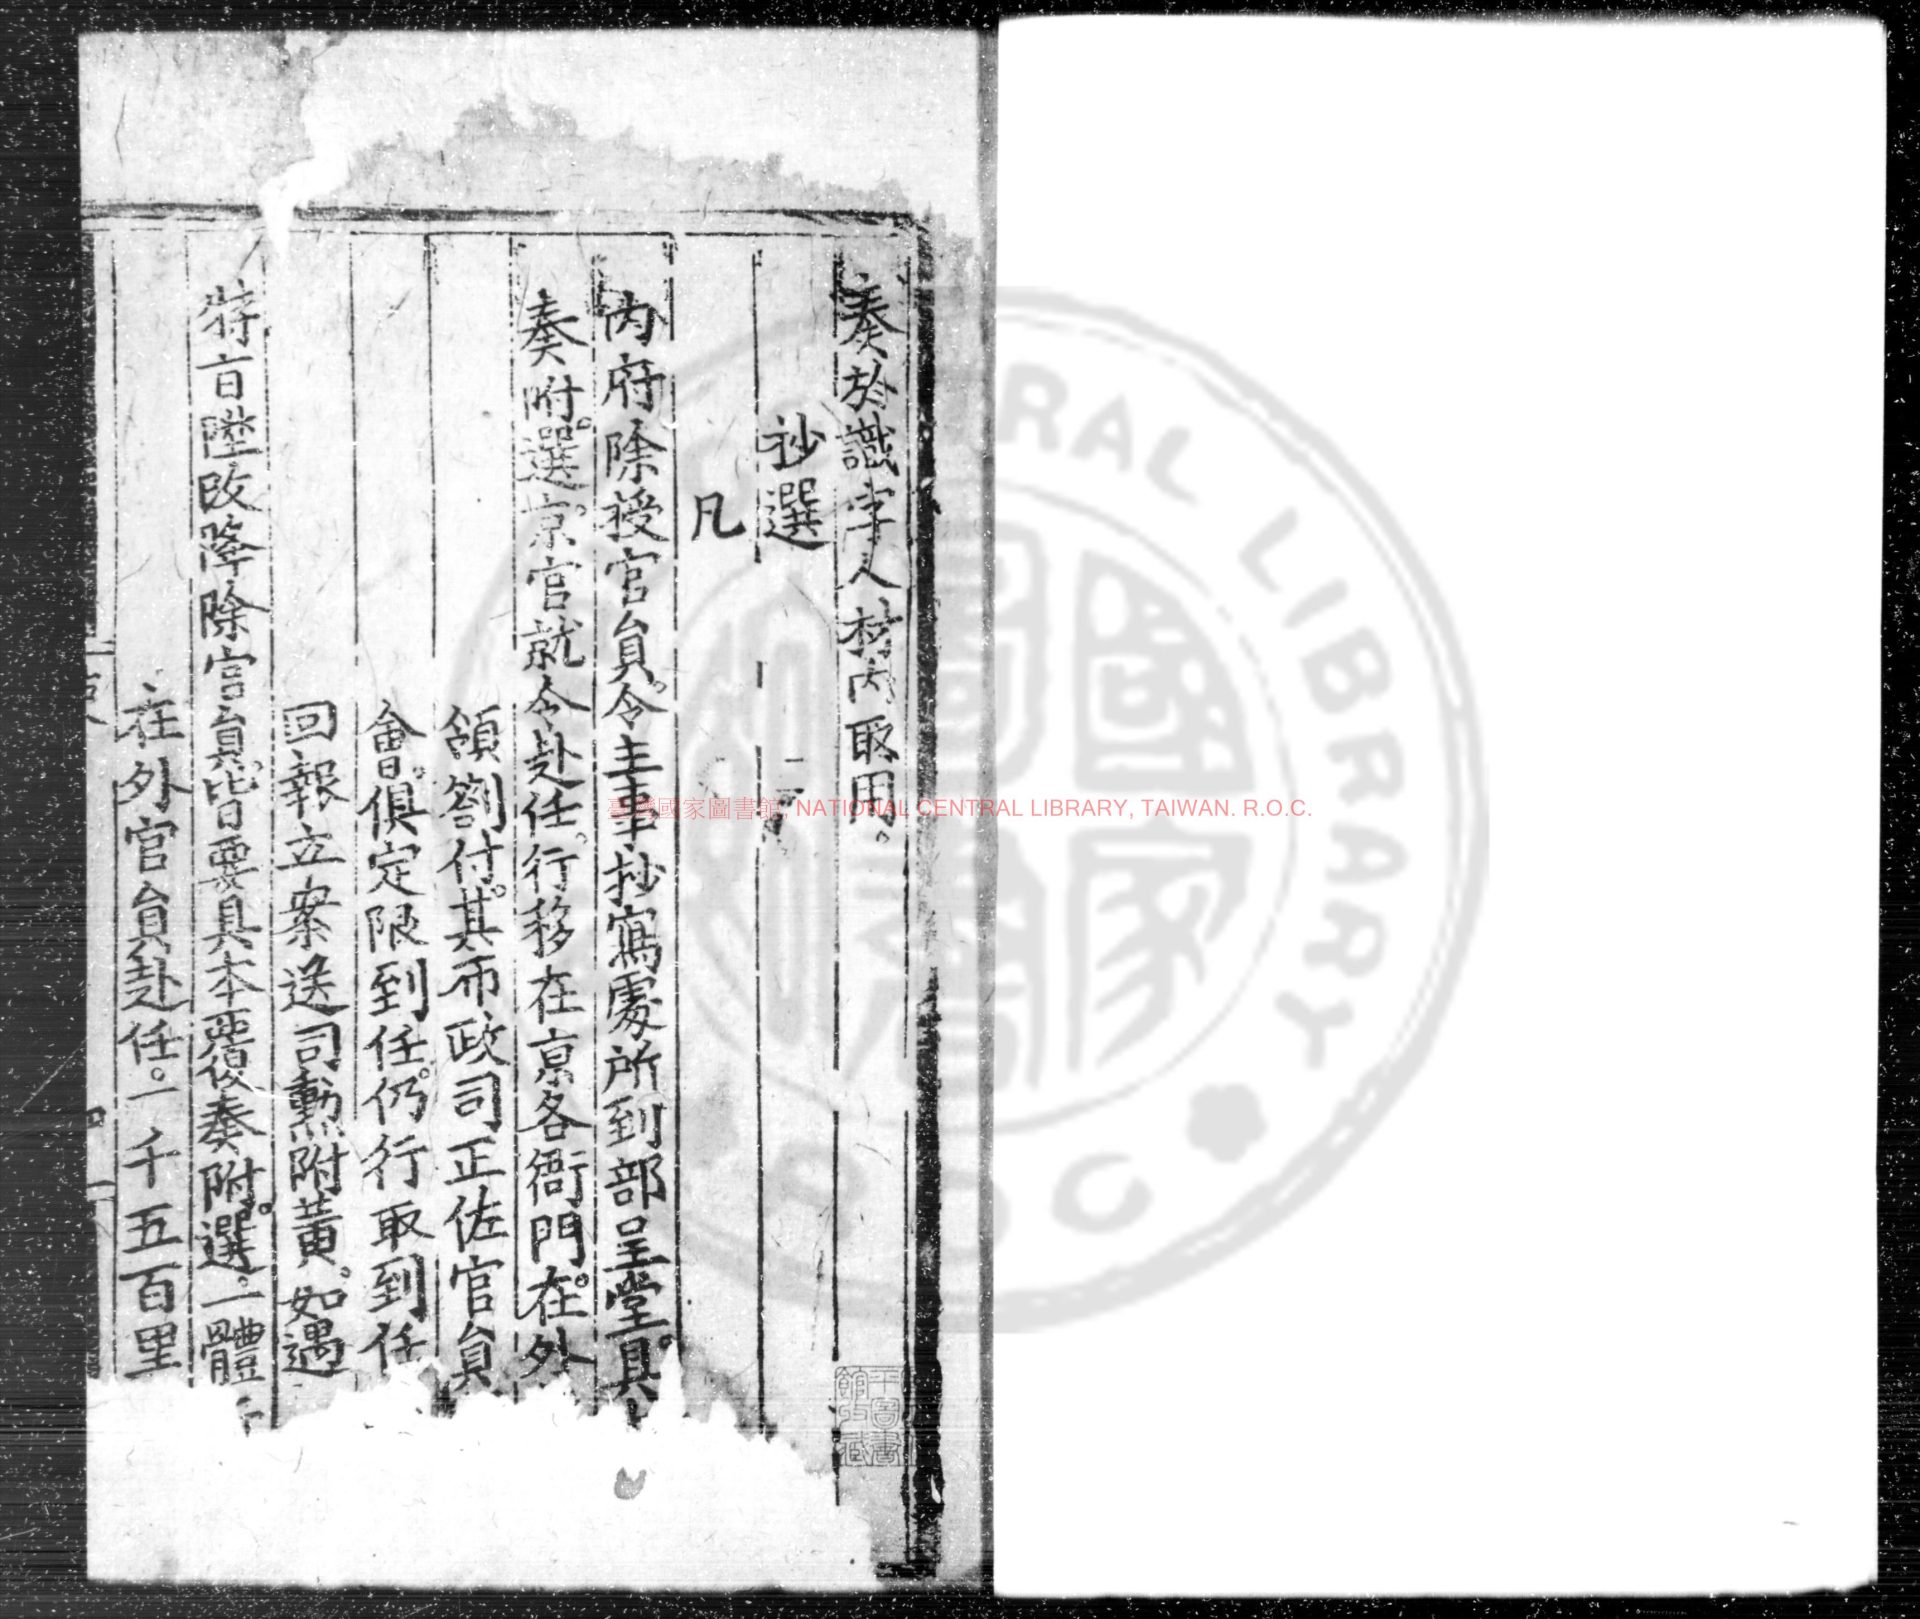 奏於識字人材內取用。
抄選
凡
內府除授官員。令主事抄寫處所到部呈堂。具
奏附。選京。官就令赴任。行移在京各衙門。在外
領劄付。其布政司正佐官員
會。俱定限到任。仍行取到任
回報立案送司勳附黃。如遇
特旨陞改降除官員。皆要具本覆奏附。選。一體
在外官員赴任。一千五百里
臺灣國家圖書館, NATIONAL CENTRAL LIBRARY, TAIWAN. R.O.C.